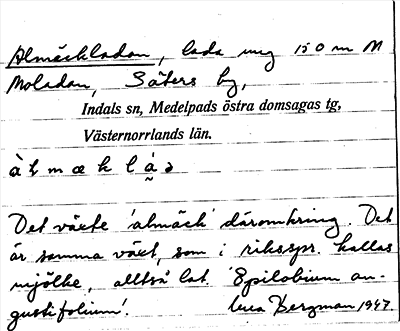 Almäckladan, lada ung 150 m N
Moladan, Säters by,
Indals sn, Medelpads östra domsagas tg,
Västernorrlands län.
àlmækláə
Det växte 'almäck' däromkring. Det
är samma växt, som i riksspr. kallas
mjölke, alltså lat. 'Epilobium an-
gustifolium'. Bergman 1947.